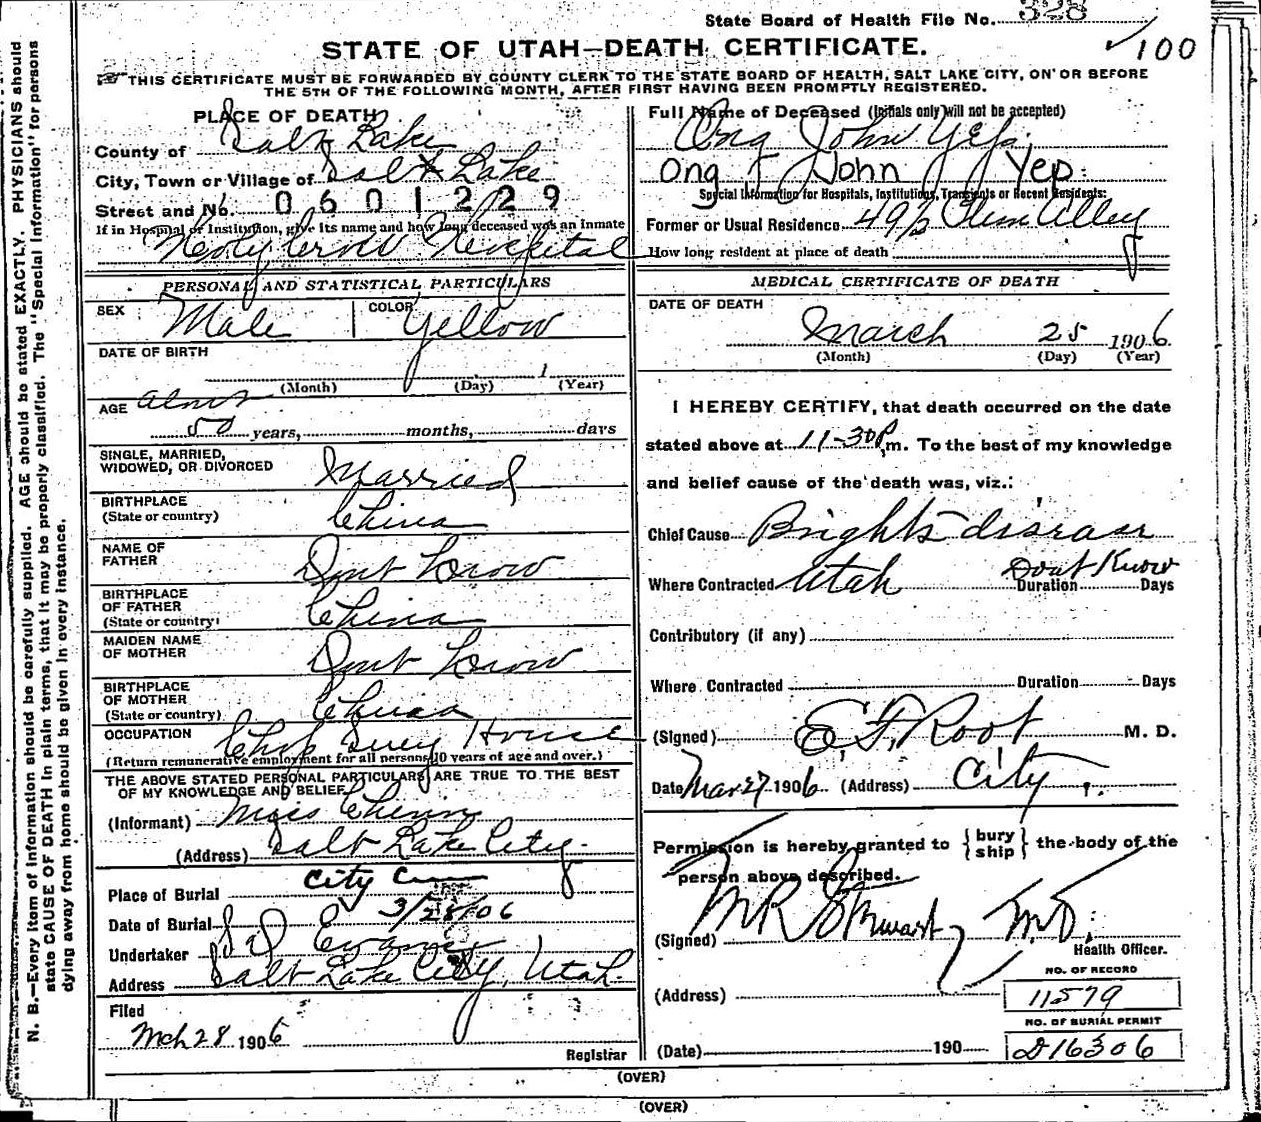 State Board of Health File No. 328
✓100
STATE OF UTAH—DEATH CERTIFICATE.
THIS CERTIFICATE MUST BE FORWARDED BY COUNTY CLERK TO THE STATE BOARD OF HEALTH, SALT LAKE CITY, ON OR BEFORE
THE 5TH OF THE FOLLOWING MONTH, AFTER FIRST HAVING BEEN PROMPTLY REGISTERED.
N. B.—Every item of information should be carefully supplied. AGE should be stated EXACTLY. PHYSICIANS should
state CAUSE OF DEATH in plain terms, that it may be properly classified. The "Special Information" for persons
dying away from home should be given in every instance.
PLACE OF DEATH
County of Salt Lake
City, Town or Village of Salt Lake
Street and No. 0601229
If in Hospital or Institution, give its name and how long deceased was an inmate
Holy Cross Hospital
PERSONAL AND STATISTICAL PARTICULARS
SEX Male COLOR Yellow
DATE OF BIRTH
(Month) (Day) 1 (Year)
AGE about
50 years, months, days
SINGLE, MARRIED,
WIDOWED, OR DIVORCED Married
BIRTHPLACE
(State or country) China
NAME OF
FATHER Dont Know
BIRTHPLACE
OF FATHER
(State or country) China
MAIDEN NAME
OF MOTHER Dont Know
BIRTHPLACE
OF MOTHER
(State or country) China
OCCUPATION Chop Suey House
(Return remunerative employment for all persons 10 years of age and over.)
THE ABOVE STATED PERSONAL PARTICULARS ARE TRUE TO THE BEST
OF MY KNOWLEDGE AND BELIEF
(Informant) Chinn
(Address) Salt Lake City
Place of Burial City Cem
Date of Burial 3/28/06
Undertaker S D Evans
Address Salt Lake City, Utah.
Filed
Mch 28 1906
Registrar
Full Name of Deceased (Initials only will not be accepted)
Ong John Yep
Ong John Yep
Special Information for Hospitals, Institutions, Transients or Recent Residents:
Former or Usual Residence 49½ Plum Alley
How long resident at place of death
MEDICAL CERTIFICATE OF DEATH
DATE OF DEATH
March 25 1906
(Month) (Day) (Year)
I HEREBY CERTIFY, that death occurred on the date
stated above at 11-30 P.m. To the best of my knowledge
and belief cause of the death was, viz.:
Chief Cause Brights disease
Where Contracted Utah Duration Dont Know Days
Contributory (if any)
Where Contracted Duration Days
(Signed) E. F. Root M. D.
Date Mar 27 1906 (Address) City.
Permission is hereby granted to {bury ship} the body of the
person above described.
(Signed) M R Stewart M.D.
Health Officer.
NO. OF RECORD
(Address) 11579
NO. OF BURIAL PERMIT
(Date) 190 D16306
(OVER)
(OVER)